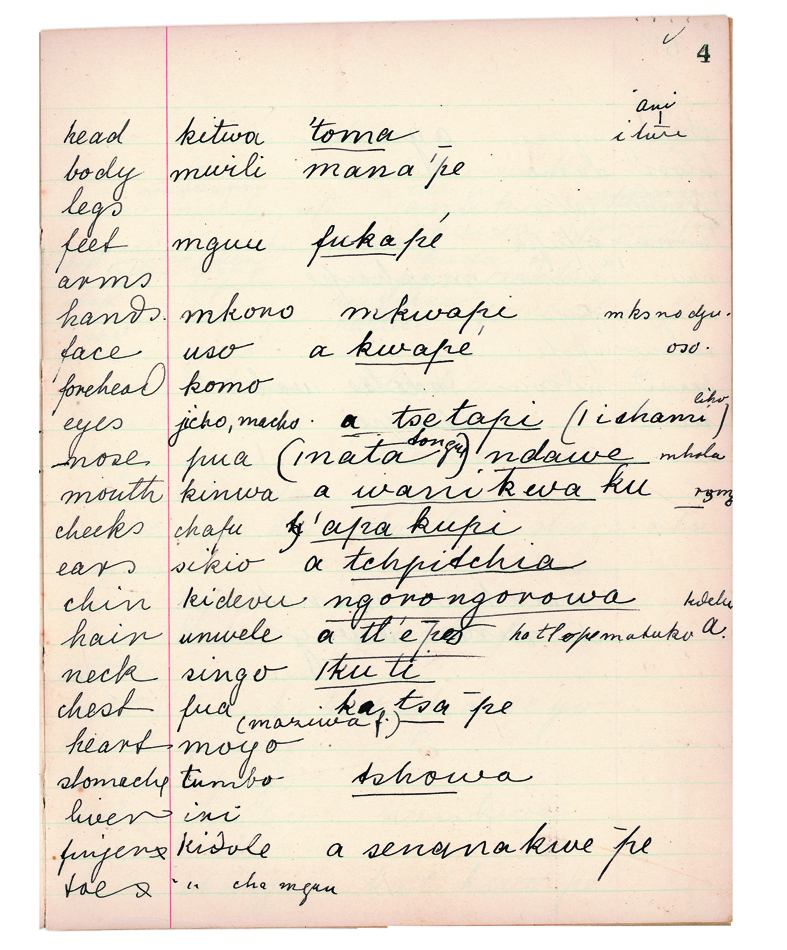 4
'ani
head kitwa 'toma i
body mwili mana'pe
legs
feet mguu fukapé
arms
hands. mkono mkwapi
face uso a kwapé oso.
forehead komo
liho
eyes jicho, macho. a tsetapi (lishami)
nose pua (mata songu) ndawe mhola
mouth kinwa a wanikewa ku
cheeks chafu 'apa kupi
ears sikio a tchpitchia
chin kidevu ngorongorowa
hair unwele a tl'epes hotlopematuko a.
neck singo Ikuti
chest fua katsa-pe
(maziwa f.)
heart moyo
stomache tumbo tshowa
liver ini
fingers kidole a senanakwe-pe
toes " cha mguu